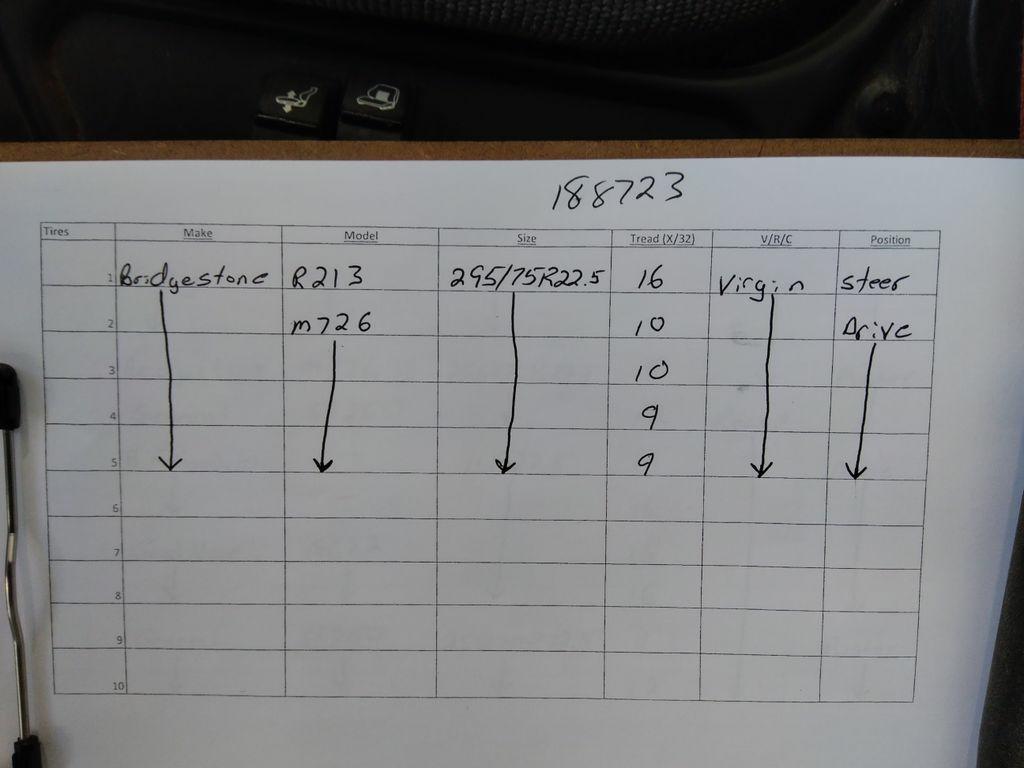 188723
Tires Make Model Size Tread (X/32) V/R/C Position
1 Bridgestone R213 295/75R22.5 16 Virgin steer
2 m726 10 Drive
3 10
4 9
5 9
6
7
8
9
10